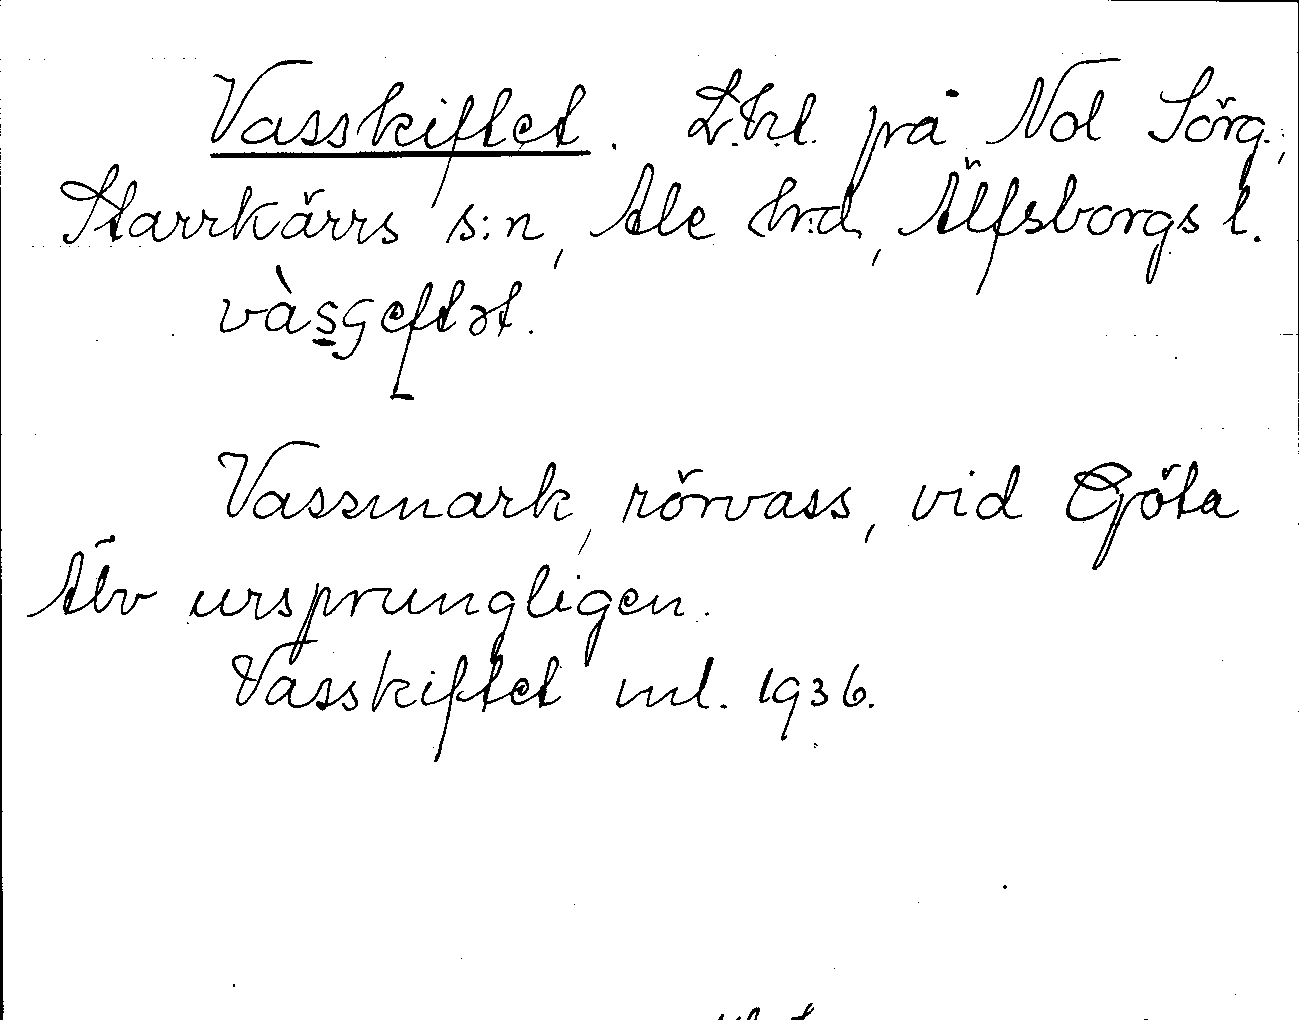 Vasskiftet. L.hl. på Nol Sörg.,
Starrkärrs s:n, Ale hrd, Älfsborgs l.
vàsɕeftət.
Vassmark, rörvass, vid Göta
Älv ursprungligen.
Vasskiftet ml. 1936.